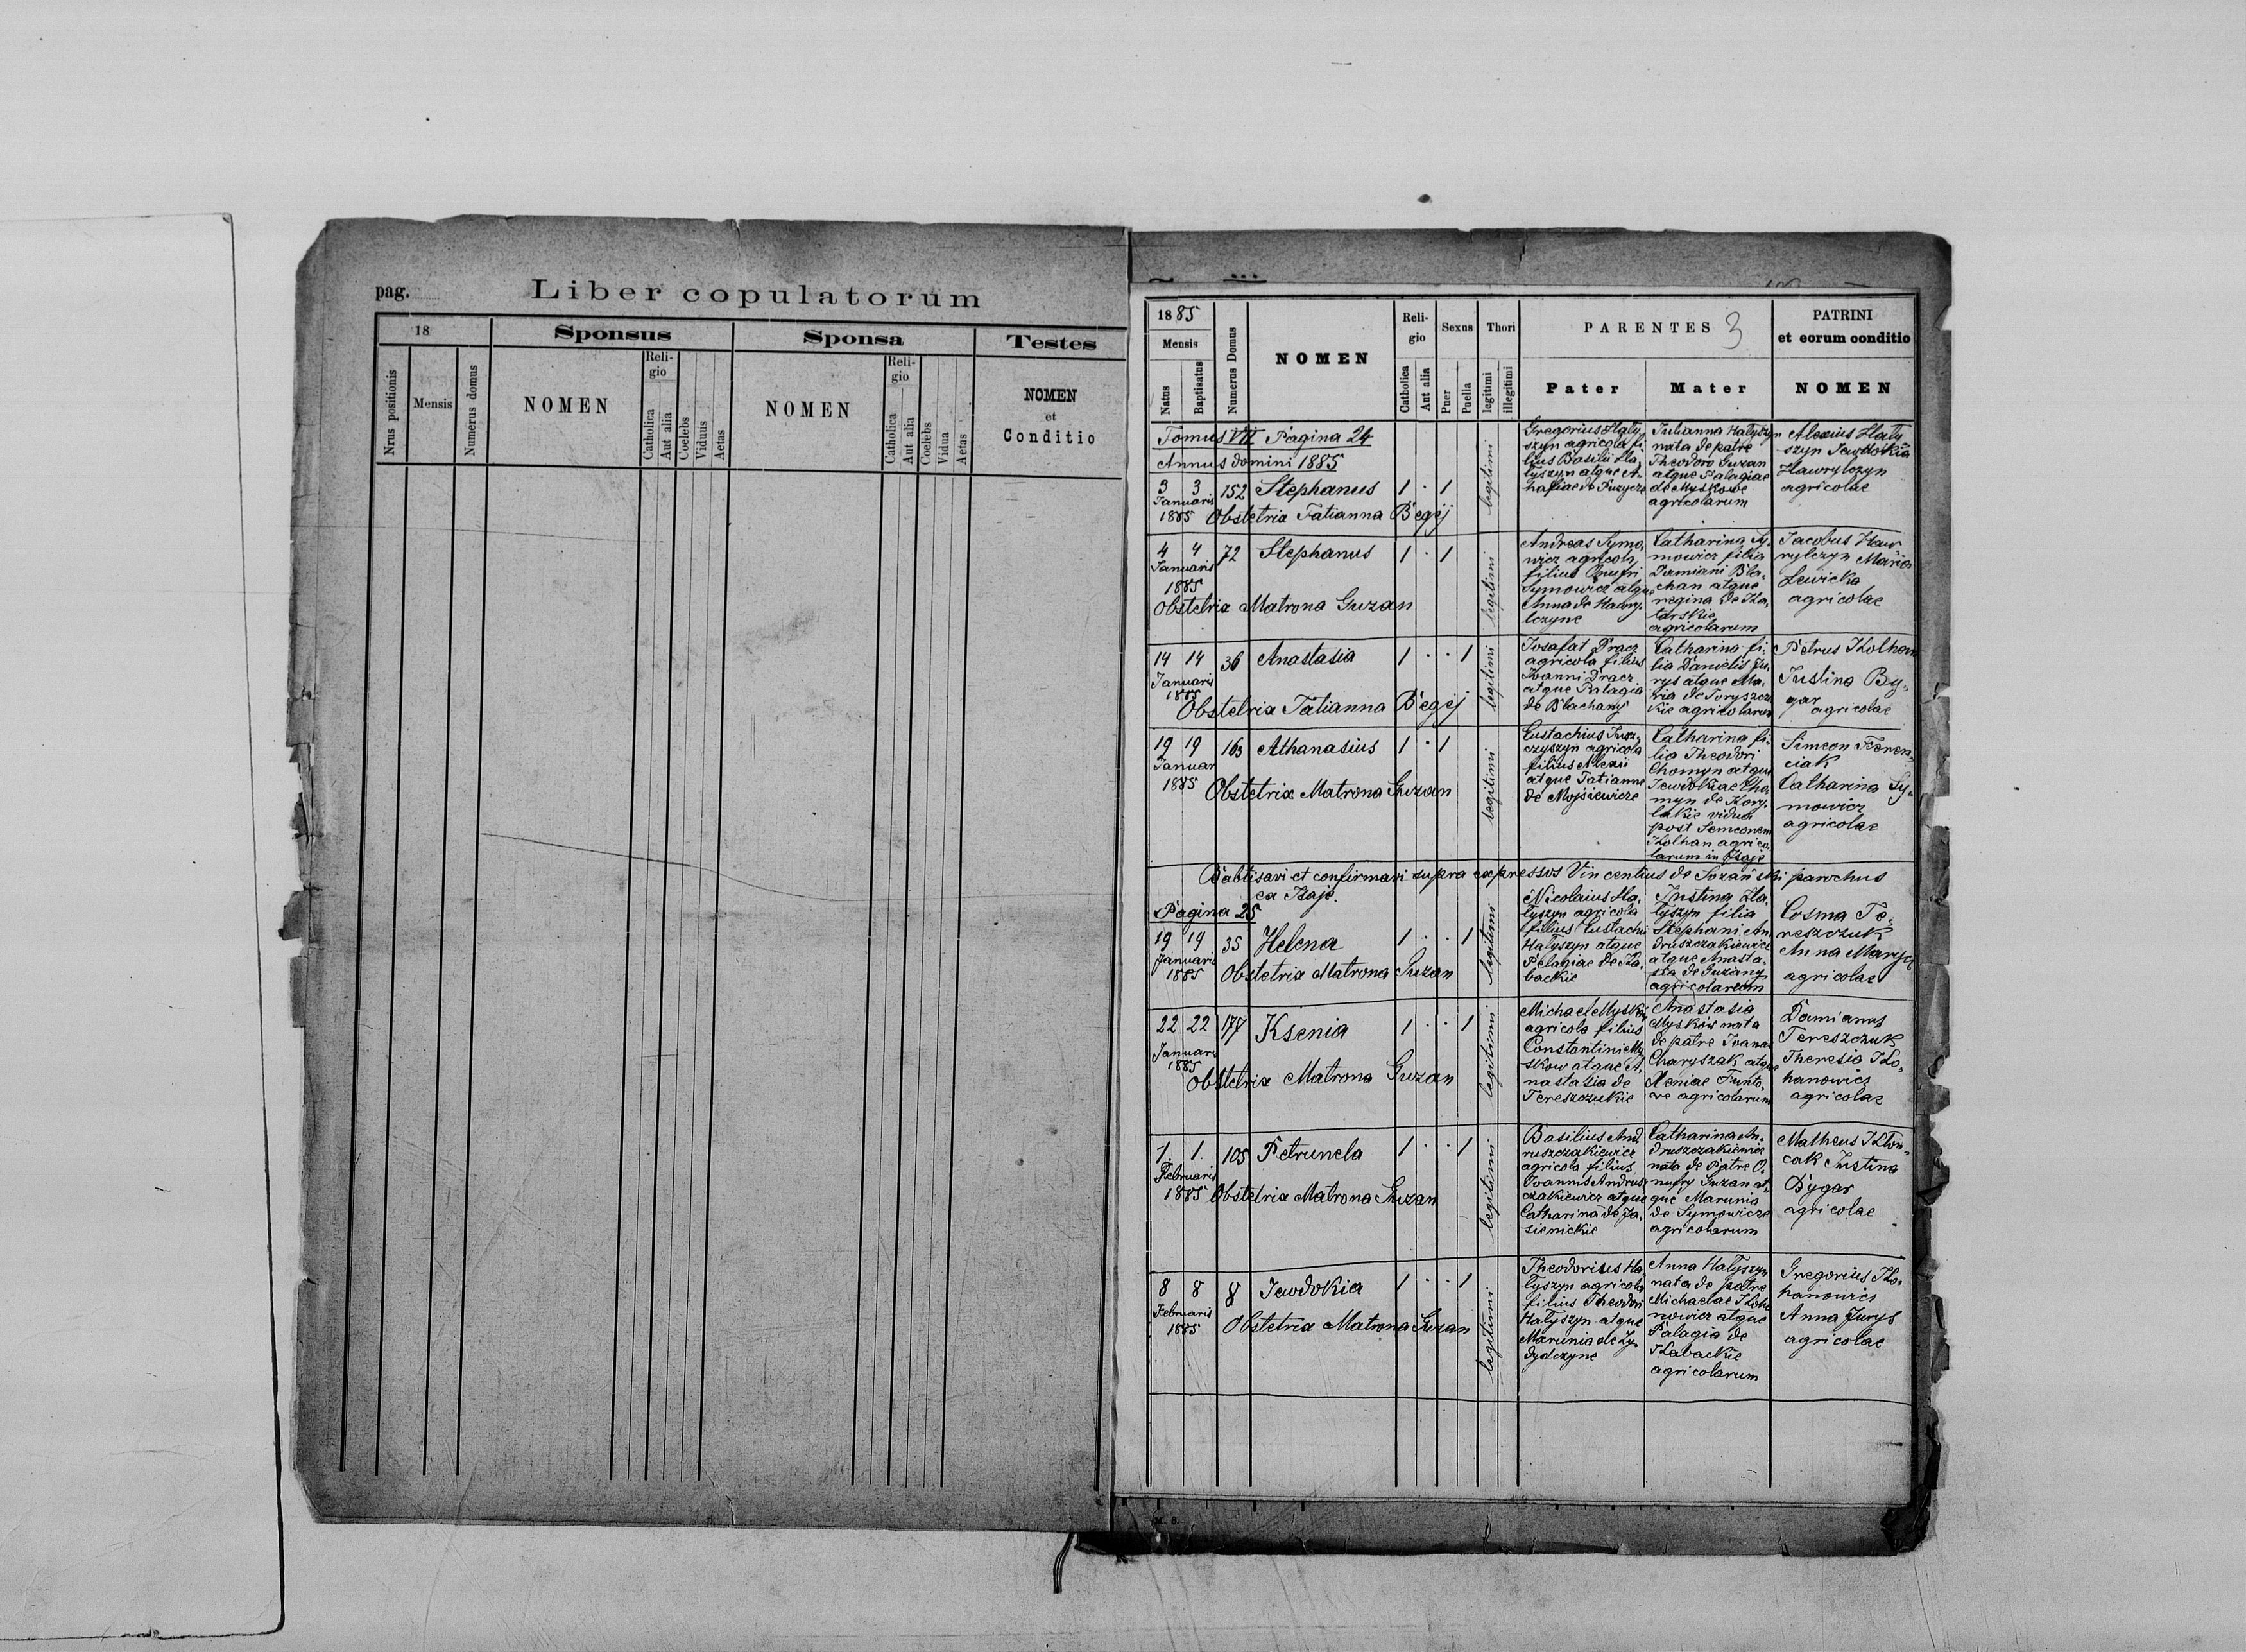 pag.
Liber copulatorum
18
Sponsus
Sponsa
Testes
Nrus positionis
Mensis
Numerus domus
NOMEN
Religio
Catholica
Aut alia
Coelebs
Viduus
Aetas
NOMEN
Religio
Catholica
Aut alia
Coelebs
Vidua
Aetas
NOMEN
et
Conditio
1885
Mensis
Natus
Baptisatus
Numerus Domus
NOMEN
Reli-
gio
Catholica
Aut alia
Sexus
Puer
Puella
Thori
legitimi
illegitimi
PARENTES 3
Pater
Mater
PATRINI
et eorum conditio
NOMEN
Tomus VII Pagina 24
Annus domini 1885
3 3 152 Stephanus 1 · 1
Januaris
1885 Obstetrix Tatianna Begej
legitimi
Gregorius Hały,
szyn agricola fi,
lius Basilii Ha,
łyszyn atque A,
hafiae de Puzycze
Julianna Hałyszyn
nata de patre
Theodoro Guzan
atque Palagiae
de Myskowe
agricolarum
Alexius Hały
szyn Jewdokia
Hawrylczyn
agricolae
4 4 72 Stephanus 1 · 1
Januaris
1885
Obstetrix Matrona Guzan
legitimi
Andreas Symo,
wicz agricola
filius Onufri
Symowicz atque
Anna de Hawry,
lczyne
Catharina Sy,
mowicz filia
Damiani Bla,
chan atque
regina de Ko,
tarskie
agricolarum
Jacobus Haw
rylczyn Maria
Lewicka
agricolae
14 14 36 Anastasia 1 · · 1
Januaris
1885
Obstetrix Tatianna Begej
legitimi
Josafat Dracz
agricola filius
Joanni Dracz
atque Palagia
de Blachany
Catharina fi,
lia Danielis Ju,
rys atque Ma,
ria de Toryszcza
kie agricolarum
Petrus Kolhan
Justina By,
gar
agricolae
19 19 163 Athanasius 1 · 1
Januar
1885
Obstetrix Matrona Guzan
legitimi
Eustachius Jusz,
czyszyn agricola
filius Alexii
atque Tatianne
de Mojsiewicze
Catharina fi,
lia Theodori
Chomyn atque
Jewdokiae Cho,
myn de Kory,
lakie vidua
post Semeonem
Kolhan agrico,
larum in Isaje
Simeon Feren,
ciak
Catharina Sy,
mowicz
agricolae
Babtisavi et confirmavi supra expressos Vincentius de Sozański parochus
ex Isaje.
Pagina 25
19 19 35 Helena 1 · · 1
Januaris
1885 Obstetrix Matrona Guzan
legitimi
Nicolaius Ha,
łyszyn agricola
filius Eustachii
Hałyszyn atque
Pelagiae de Ka,
backie
Justina Ha,
łyszyn filia
Stephani An,
druszczakiewicz
atque Anasta,
sia de Guzany
agricolarum
Cosma Te,
reszczuk
Anna Marycz
agricolae
22 22 177 Ksenia 1 · · 1
Januaris
1885
Obstetrix Matrona Guzan
legitimi
Michael Myskow
agricola filius
Constantini My,
skow atque A,
nastasia de
Tereszczukie
Anastasia
Myskow nata
de patre Joanne
Charyszak atque
Xeniae Funto,
we agricolarum
Damianus
Tereszczuk
Theresia Ko,
hanowicz
agricolae
1. 1. 105 Petrunela 1 · · 1
Februaris
1885 Obstetrix Matrona Guzan
legitimi
Basilius And,
ruszczakiewicz
agricola filius
Joannis Andrusz
czakiewicz atque
Catharina de Ja,
sienickie
Catharina An,
druszczakiewicz
nata de Patre O,
nufry Guzan at,
que Marunia
de Symowicze
agricolarum
Matheus
cak Justina
Bygar
agricolae
8 8 8 Jewdokia 1 · · 1
Februaris
1885 Obstetrix Matrona Guzan
legitimi
Theodorius Ha,
łyszyn agricola
filius Theodori
Hałyszyn atque
Marunia de Zy,
dydczyne
Anna Hałyszyn
nata de patre
Michaelae Koha
nowicz atque
Palagia de
Kabackie
agricolarum
Gregorius Ko,
hanowics
Anna Jurys
agricolae
M. S.